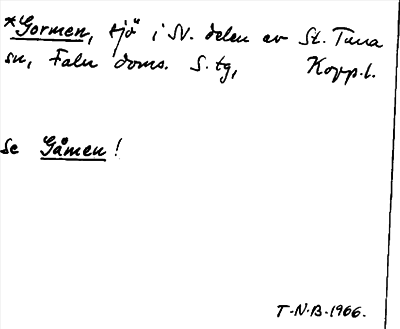 *Gormen, sjö i SV. delen av St. Tuna
sn, Falu doms. S. tg, Kopp.l.
se Gåmen!
T-N-B-1966.